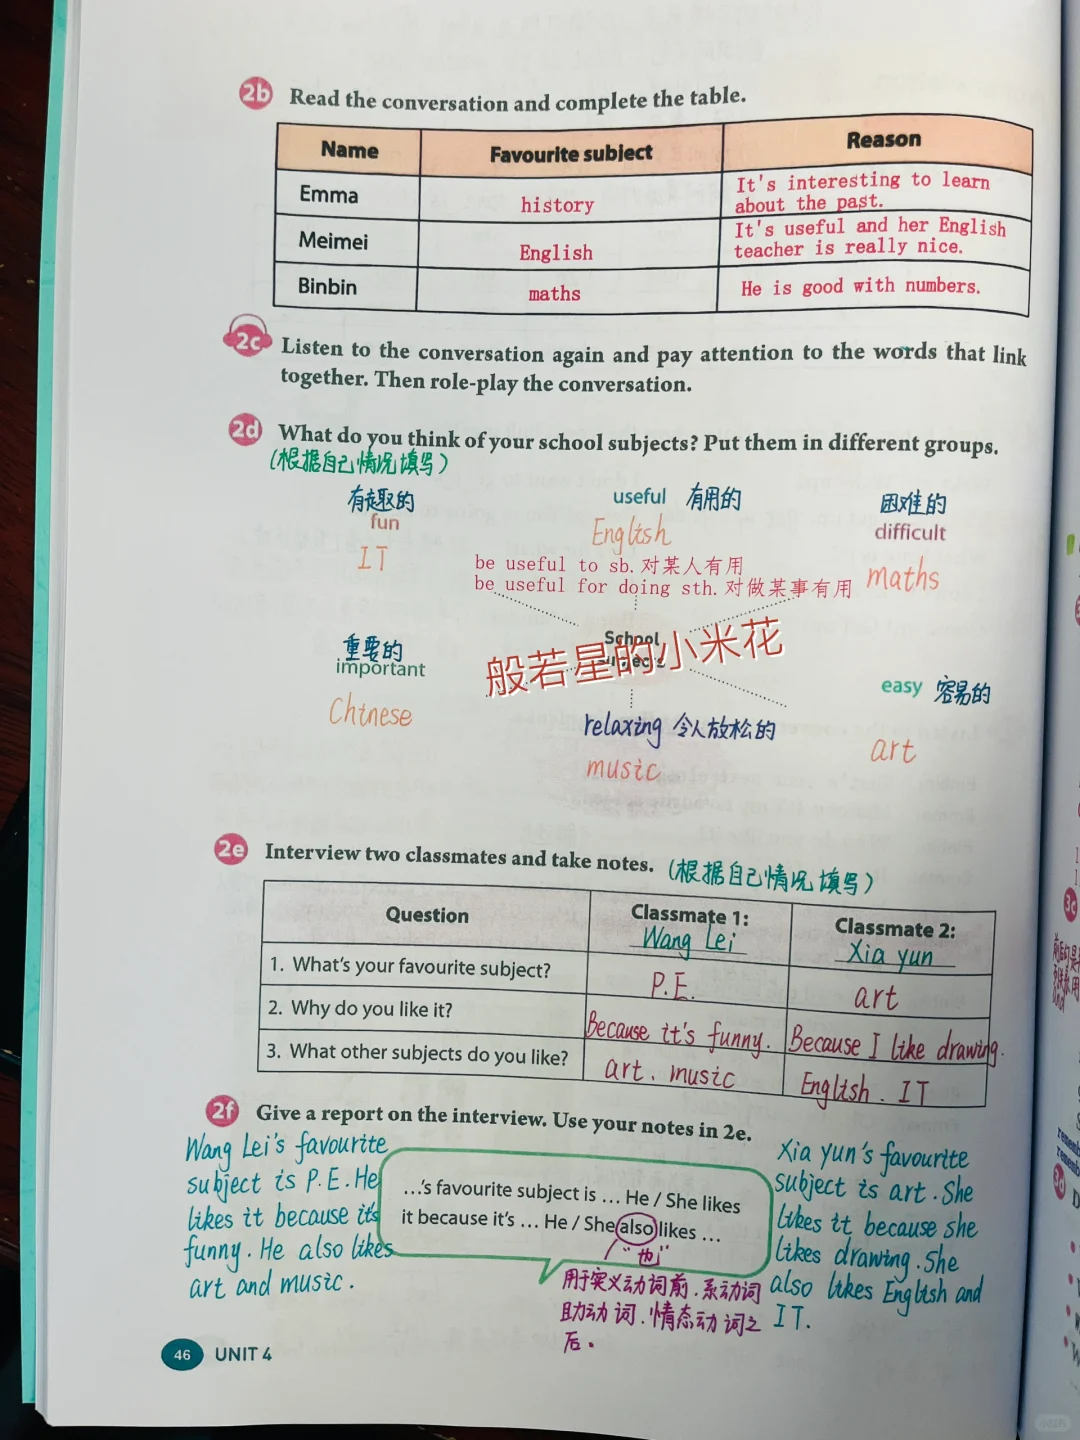 2b Read the conversation and complete the table.
Name Favourite subject Reason
Emma history It's interesting to learn
about the past.
Meimei English It's useful and her English
teacher is really nice.
Binbin maths He is good with numbers.
2c Listen to the conversation again and pay attention to the words that link
together. Then role-play the conversation.
2d What do you think of your school subjects? Put them in different groups.
(根据自己情况填写)
有趣的
fun
IT
useful 有用的
English
困难的
difficult
maths
be useful to sb.对某人有用
be useful for doing sth.对做某事有用
School
般若星的小米花
重要的
important
Chinese
relaxing 令人放松的
music
easy 容易的
art
2e Interview two classmates and take notes. (根据自己情况填写)
Question Classmate 1: Wang Lei Classmate 2: Xia yun
1. What's your favourite subject? P.E. art
2. Why do you like it? Because it's funny. Because I like drawing.
3. What other subjects do you like? art. music English. IT
2f Give a report on the interview. Use your notes in 2e.
Wang Lei's favourite
subject is P.E. He
likes it because it's
funny. He also likes
art and music.
...'s favourite subject is ... He / She likes
it because it's ... He / She also likes ...
"也"
用于实义动词前.系动词
助动词.情态动词之
后.
Xia yun's favourite
subject is art. She
likes it because she
likes drawing. She
also likes English and
IT.
46 UNIT 4
3c
3d